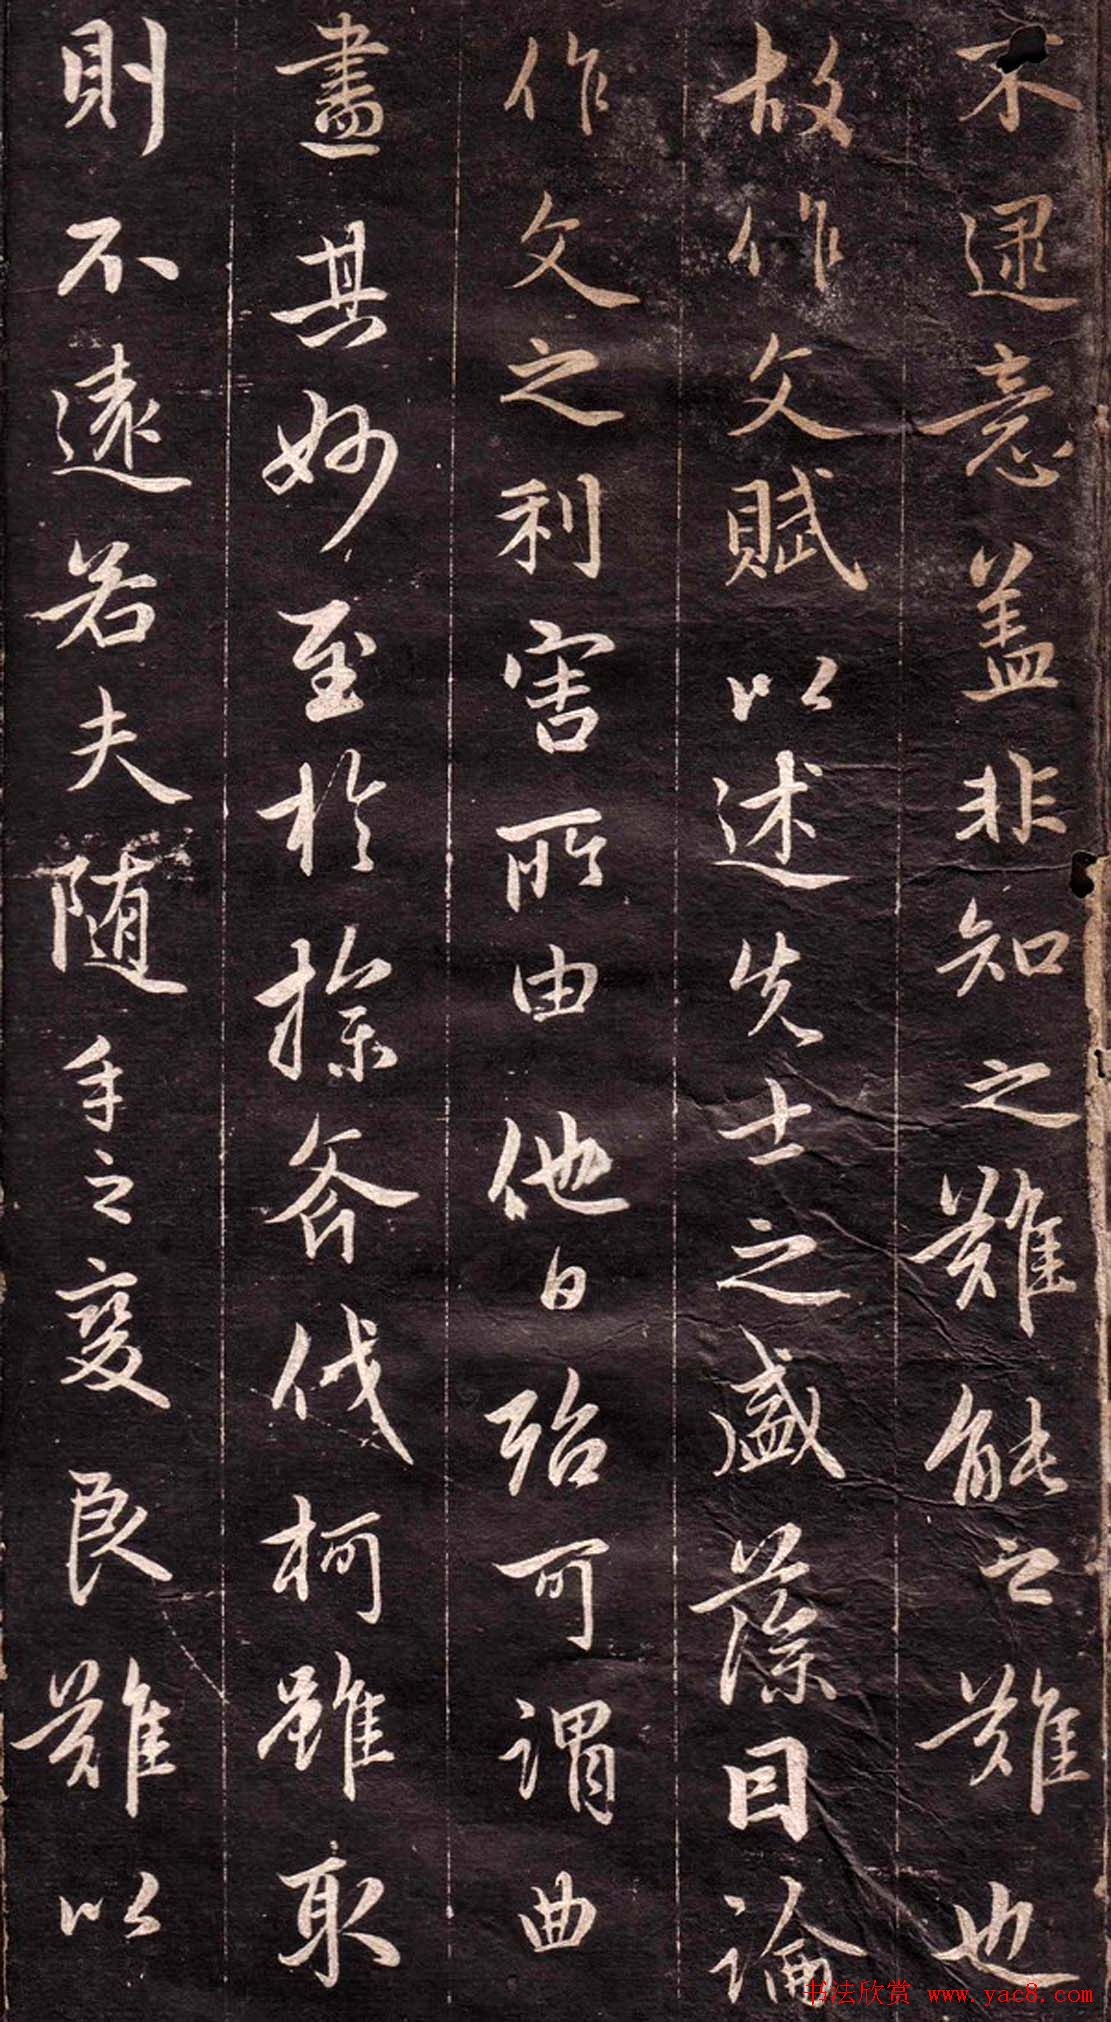 不逮意盖非知之難能之難也
故作文賦以述先士之盛藻因論
作文之利害所由他日殆可謂曲
盡其妙至於操斧伐柯雖取
則不遠若夫随手之變良難以
书法欣赏 www.yac8.com